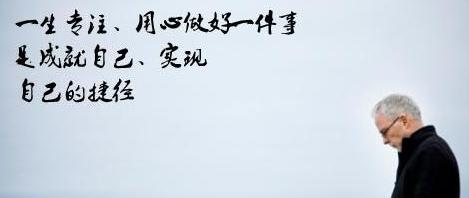 一生专注、用心做好一件事
是成就自己、实现
自己的捷径